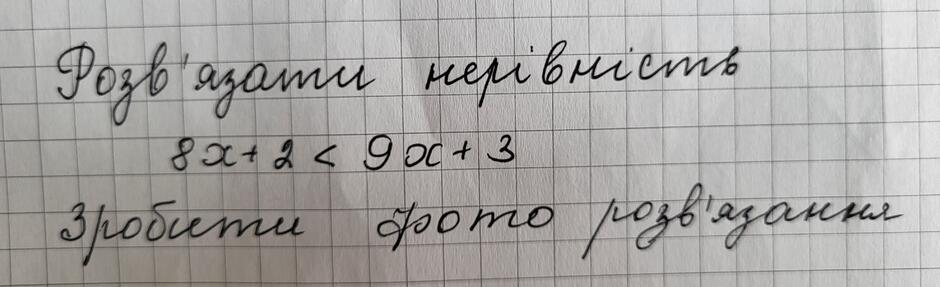 Розв'язати нерівність
8x + 2 < 9x + 3
Зробити фото розв'язання